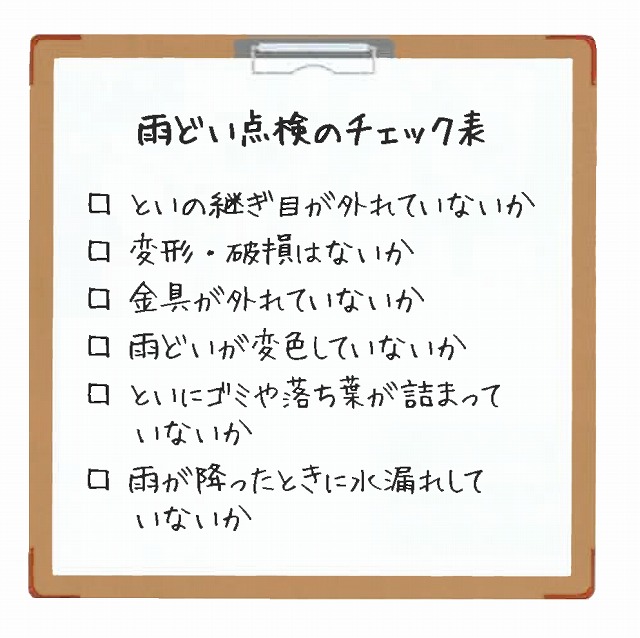 雨どい点検のチェック表
□ といの継ぎ目が外れていないか
□ 変形・破損はないか
□ 金具が外れていないか
□ 雨どいが変色していないか
□ といにゴミや落ち葉が詰まって
いないか
□ 雨が降ったときに水漏れして
いないか